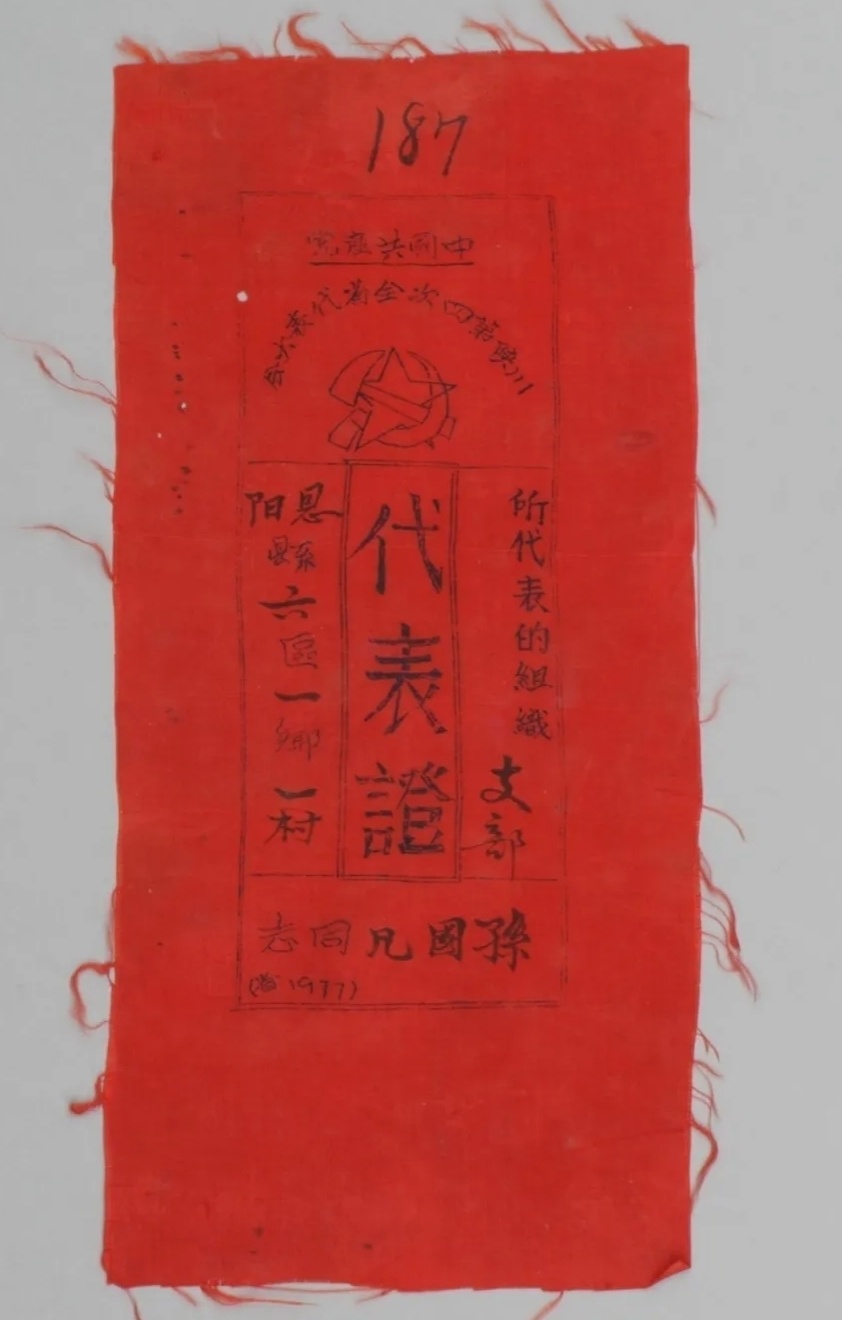 187
中國共產党
川陝第四次全省代表大会
所代表的組織
支部
代表證
恩阳
縣六區一鄉一村
孫國凡同志